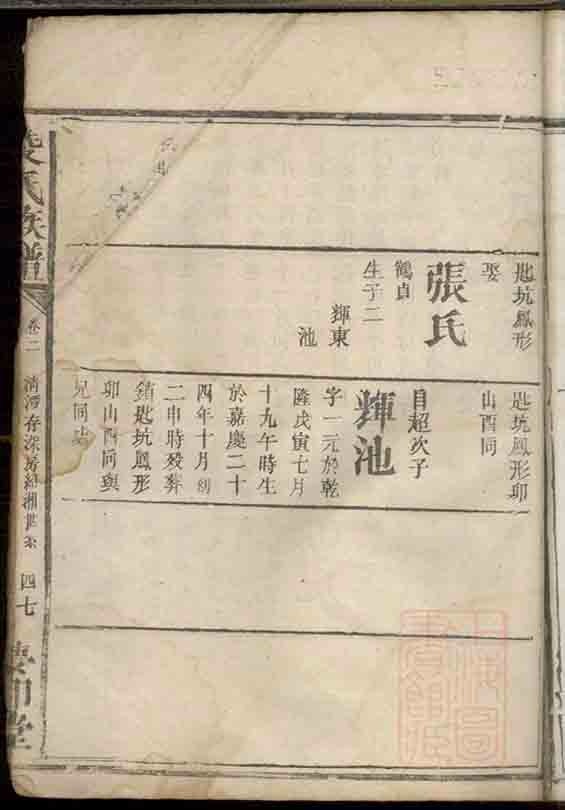 匙坑鳳形
娶
張氏
鶴貞
生子二
輝東
池
匙坑鳳形卯
山酉同
目超次子
輝池
字一元於乾
隆戊寅七月
十九午時生
於嘉慶二十
四年十月初
二申時歿葬
鎖匙坑鳳形
卯山酉同與
兄同
氏族譜
卷二
清潭存深房紹湘世系
四七
堂
上海圖
書館藏